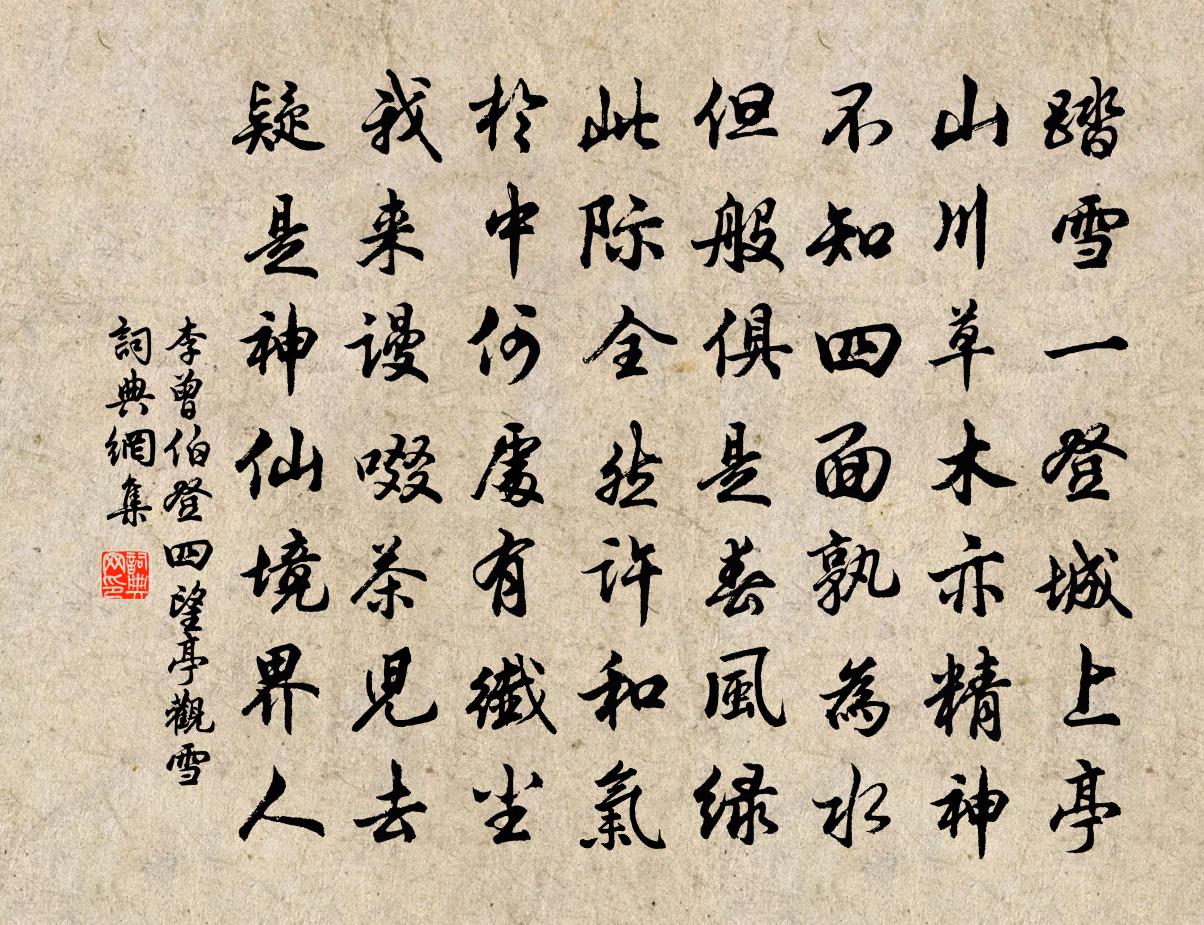 踏雪一登城上亭
山川草木亦精神
不知四面孰為水
但般俱是春風綠
此际全然许和氣
於中何處有纖尘
我来谩啜茶児去
疑是神仙境界人
李曾伯登四望亭觀雪
詞典網集
詞典
网印